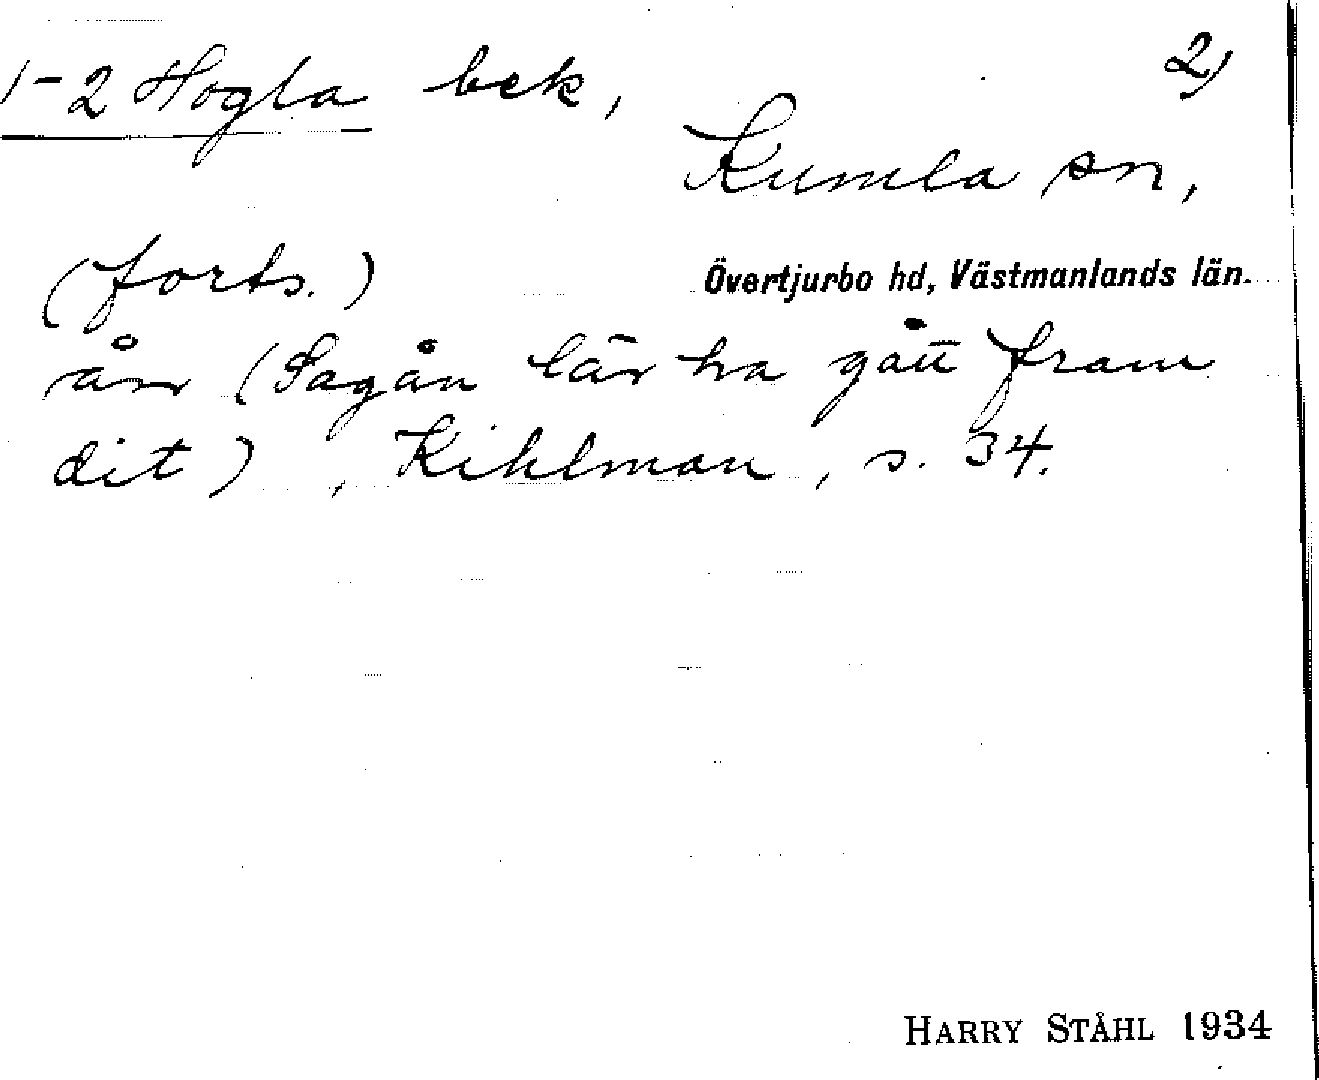 1-2 Hogla bek, 2,
Kumla sn,
(forts.)
Övertjurbo hd, Västmanlands län.
ån (Sagån lär ha gått fram
dit), Kihlman, s. 34.
HARRY STÅHL 1934